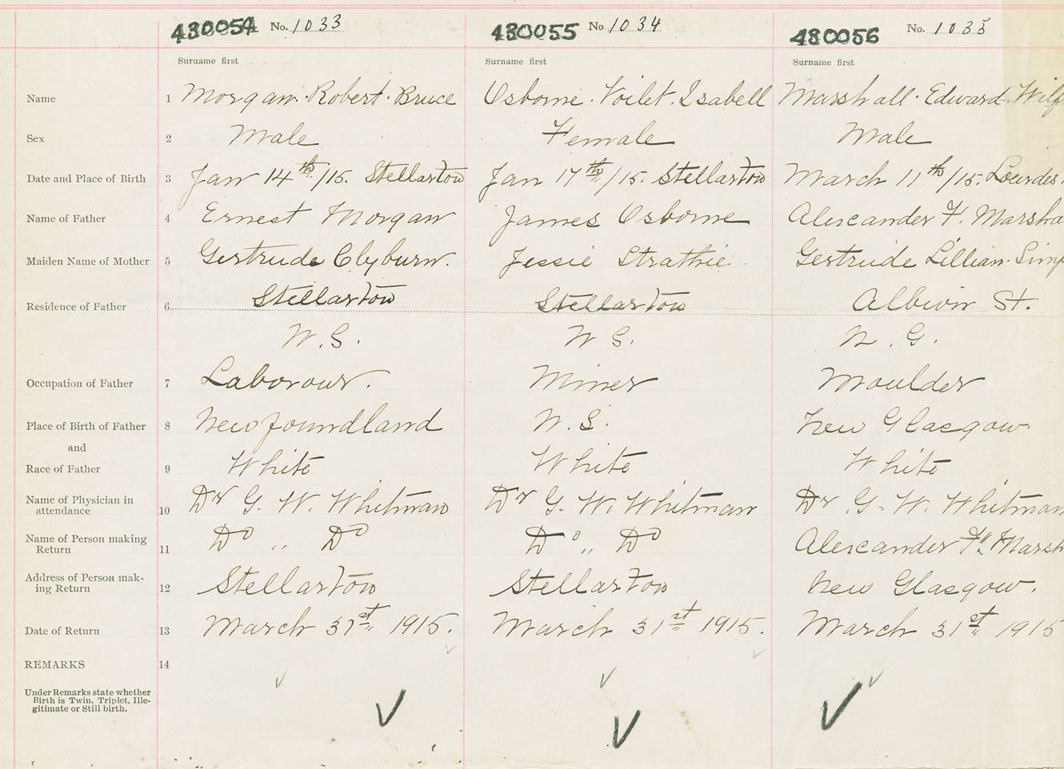 480054 No. 1033 480055 No 1034 480056 No. 1035
Surname first Surname first Surname first
Name 1 Morgan. Robert. Bruce Osborne. Voilet. Isabell Marshall. Edward Wilf
Sex 2 Male Female Male
Date and Place of Birth 3 Jan 14th/15. Stellarton Jan 17th/15. Stellarton March 11th/15. Lourdes.
Name of Father 4 Ernest Morgan James Osborne Alexcander F. Marsha
Maiden Name of Mother 5 Gertrude Clyburn. Jessie Strathie. Gertrude Lillian. Simp
Residence of Father 6 Stellarton Stellarton Albion St.
N.S. N S. N. G.
Occupation of Father 7 Labourour. Miner Moulder
Place of Birth of Father 8 Newfoundland N.S. New Glasgow
and
Race of Father 9 White White White
Name of Physician in attendance 10 Dr G. W. Whitman Dr G. W. Whitman Dr. G. W. Whitman
Name of Person making Return 11 Do ,, Do Do ,, Do Alexcander F. Marsh
Address of Person mak-
ing Return 12 Stellarton Stellarton New Glasgow.
Date of Return 13 March 31st 1915. March 31st 1915. March 31st 1915
REMARKS 14
Under Remarks state whether
Birth is Twin, Triplet, Ille-
gitimate or Still birth.